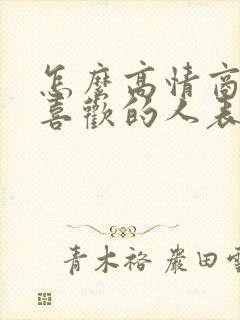 怎麼高情商
喜歡的人表
青木裕 嚴田雪